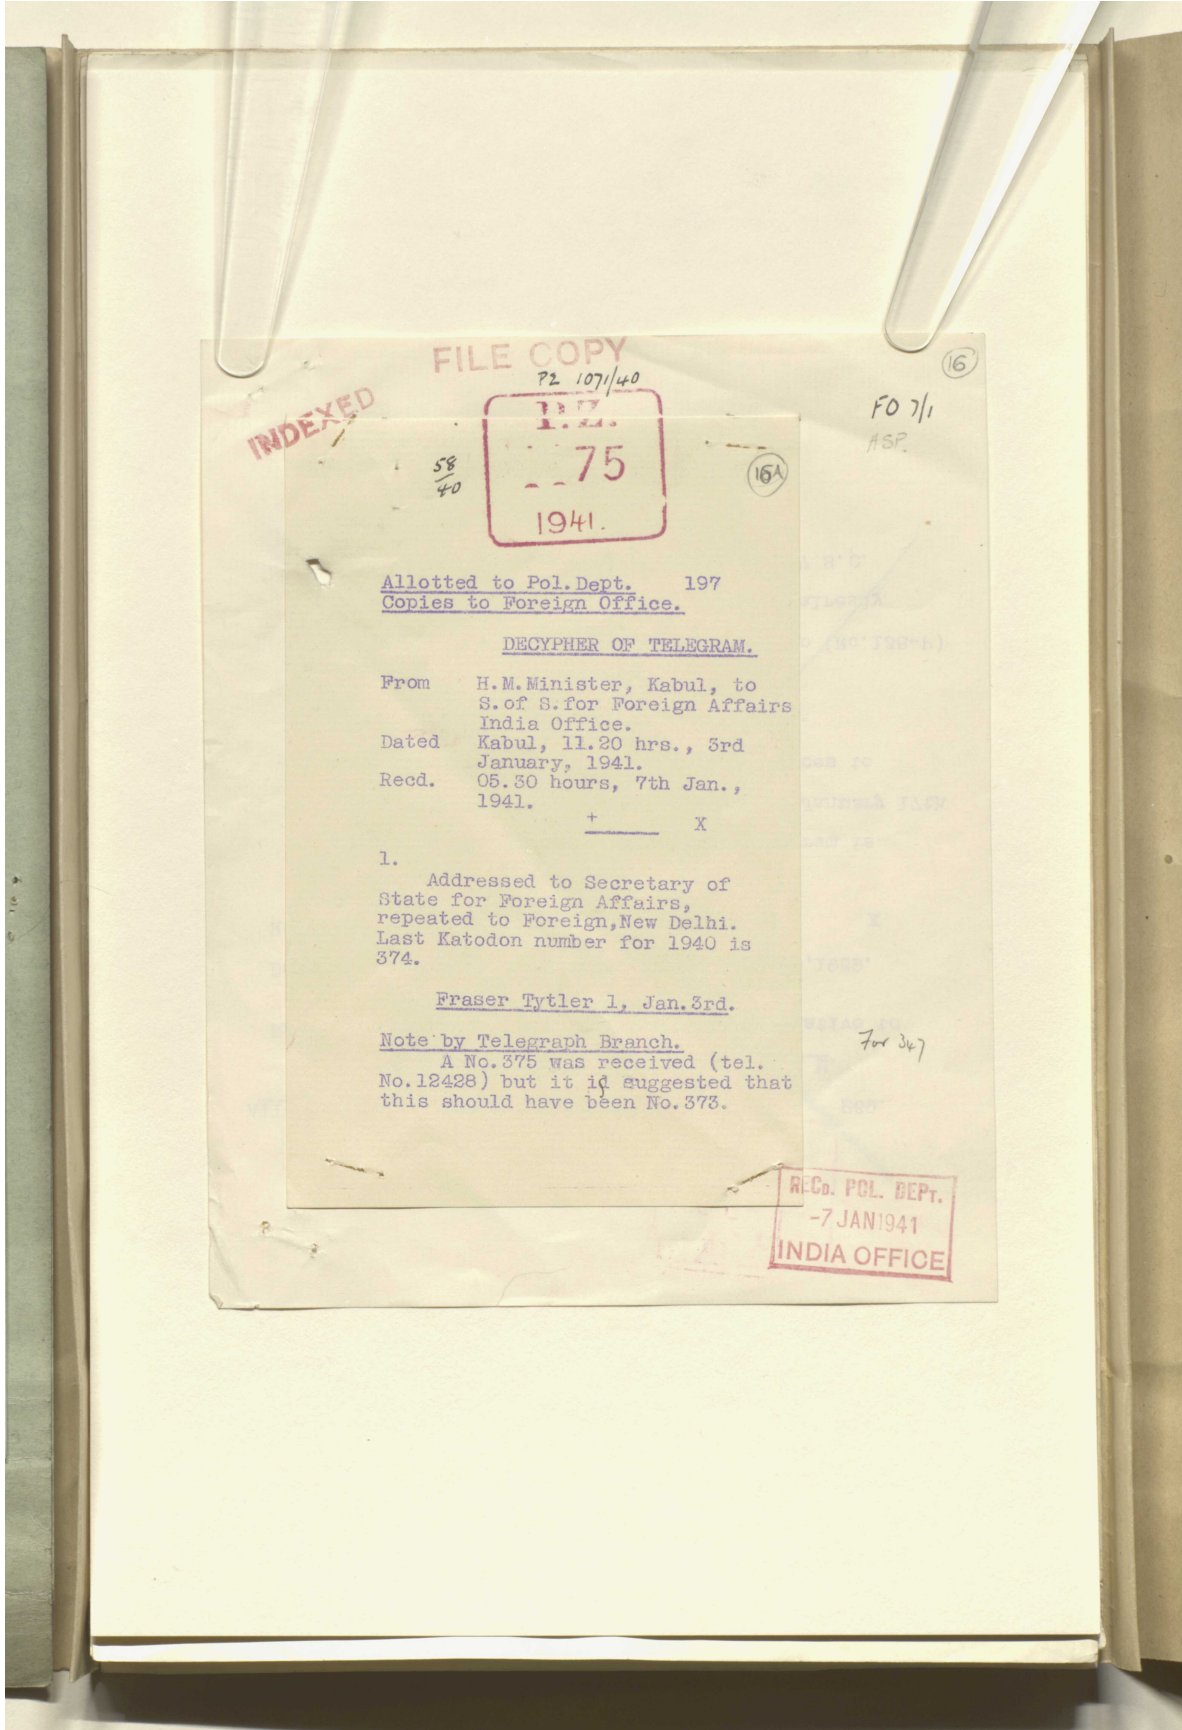 FILE COPY
16
PZ 1071/40
INDEXED
FO 7/1
P.Z.
ASP.
58
40
75
16A
1941.
Allotted to Pol.Dept. 197
Copies to Foreign Office.
DECYPHER OF TELEGRAM.
From H.M.Minister, Kabul, to
S.of S.for Foreign Affairs
India Office.
Dated Kabul, 11.20 hrs., 3rd
January, 1941.
Recd. 05.30 hours, 7th Jan.,
1941.
+ X
1.
Addressed to Secretary of
State for Foreign Affairs,
repeated to Foreign,New Delhi.
Last Katodon number for 1940 is
374.
Fraser Tytler 1, Jan.3rd.
Note by Telegraph Branch.
A No.375 was received (tel.
No.12428) but it id suggested that
this should have been No.373.
For 347
RECD. POL. DEPT.
-7 JAN 1941
INDIA OFFICE